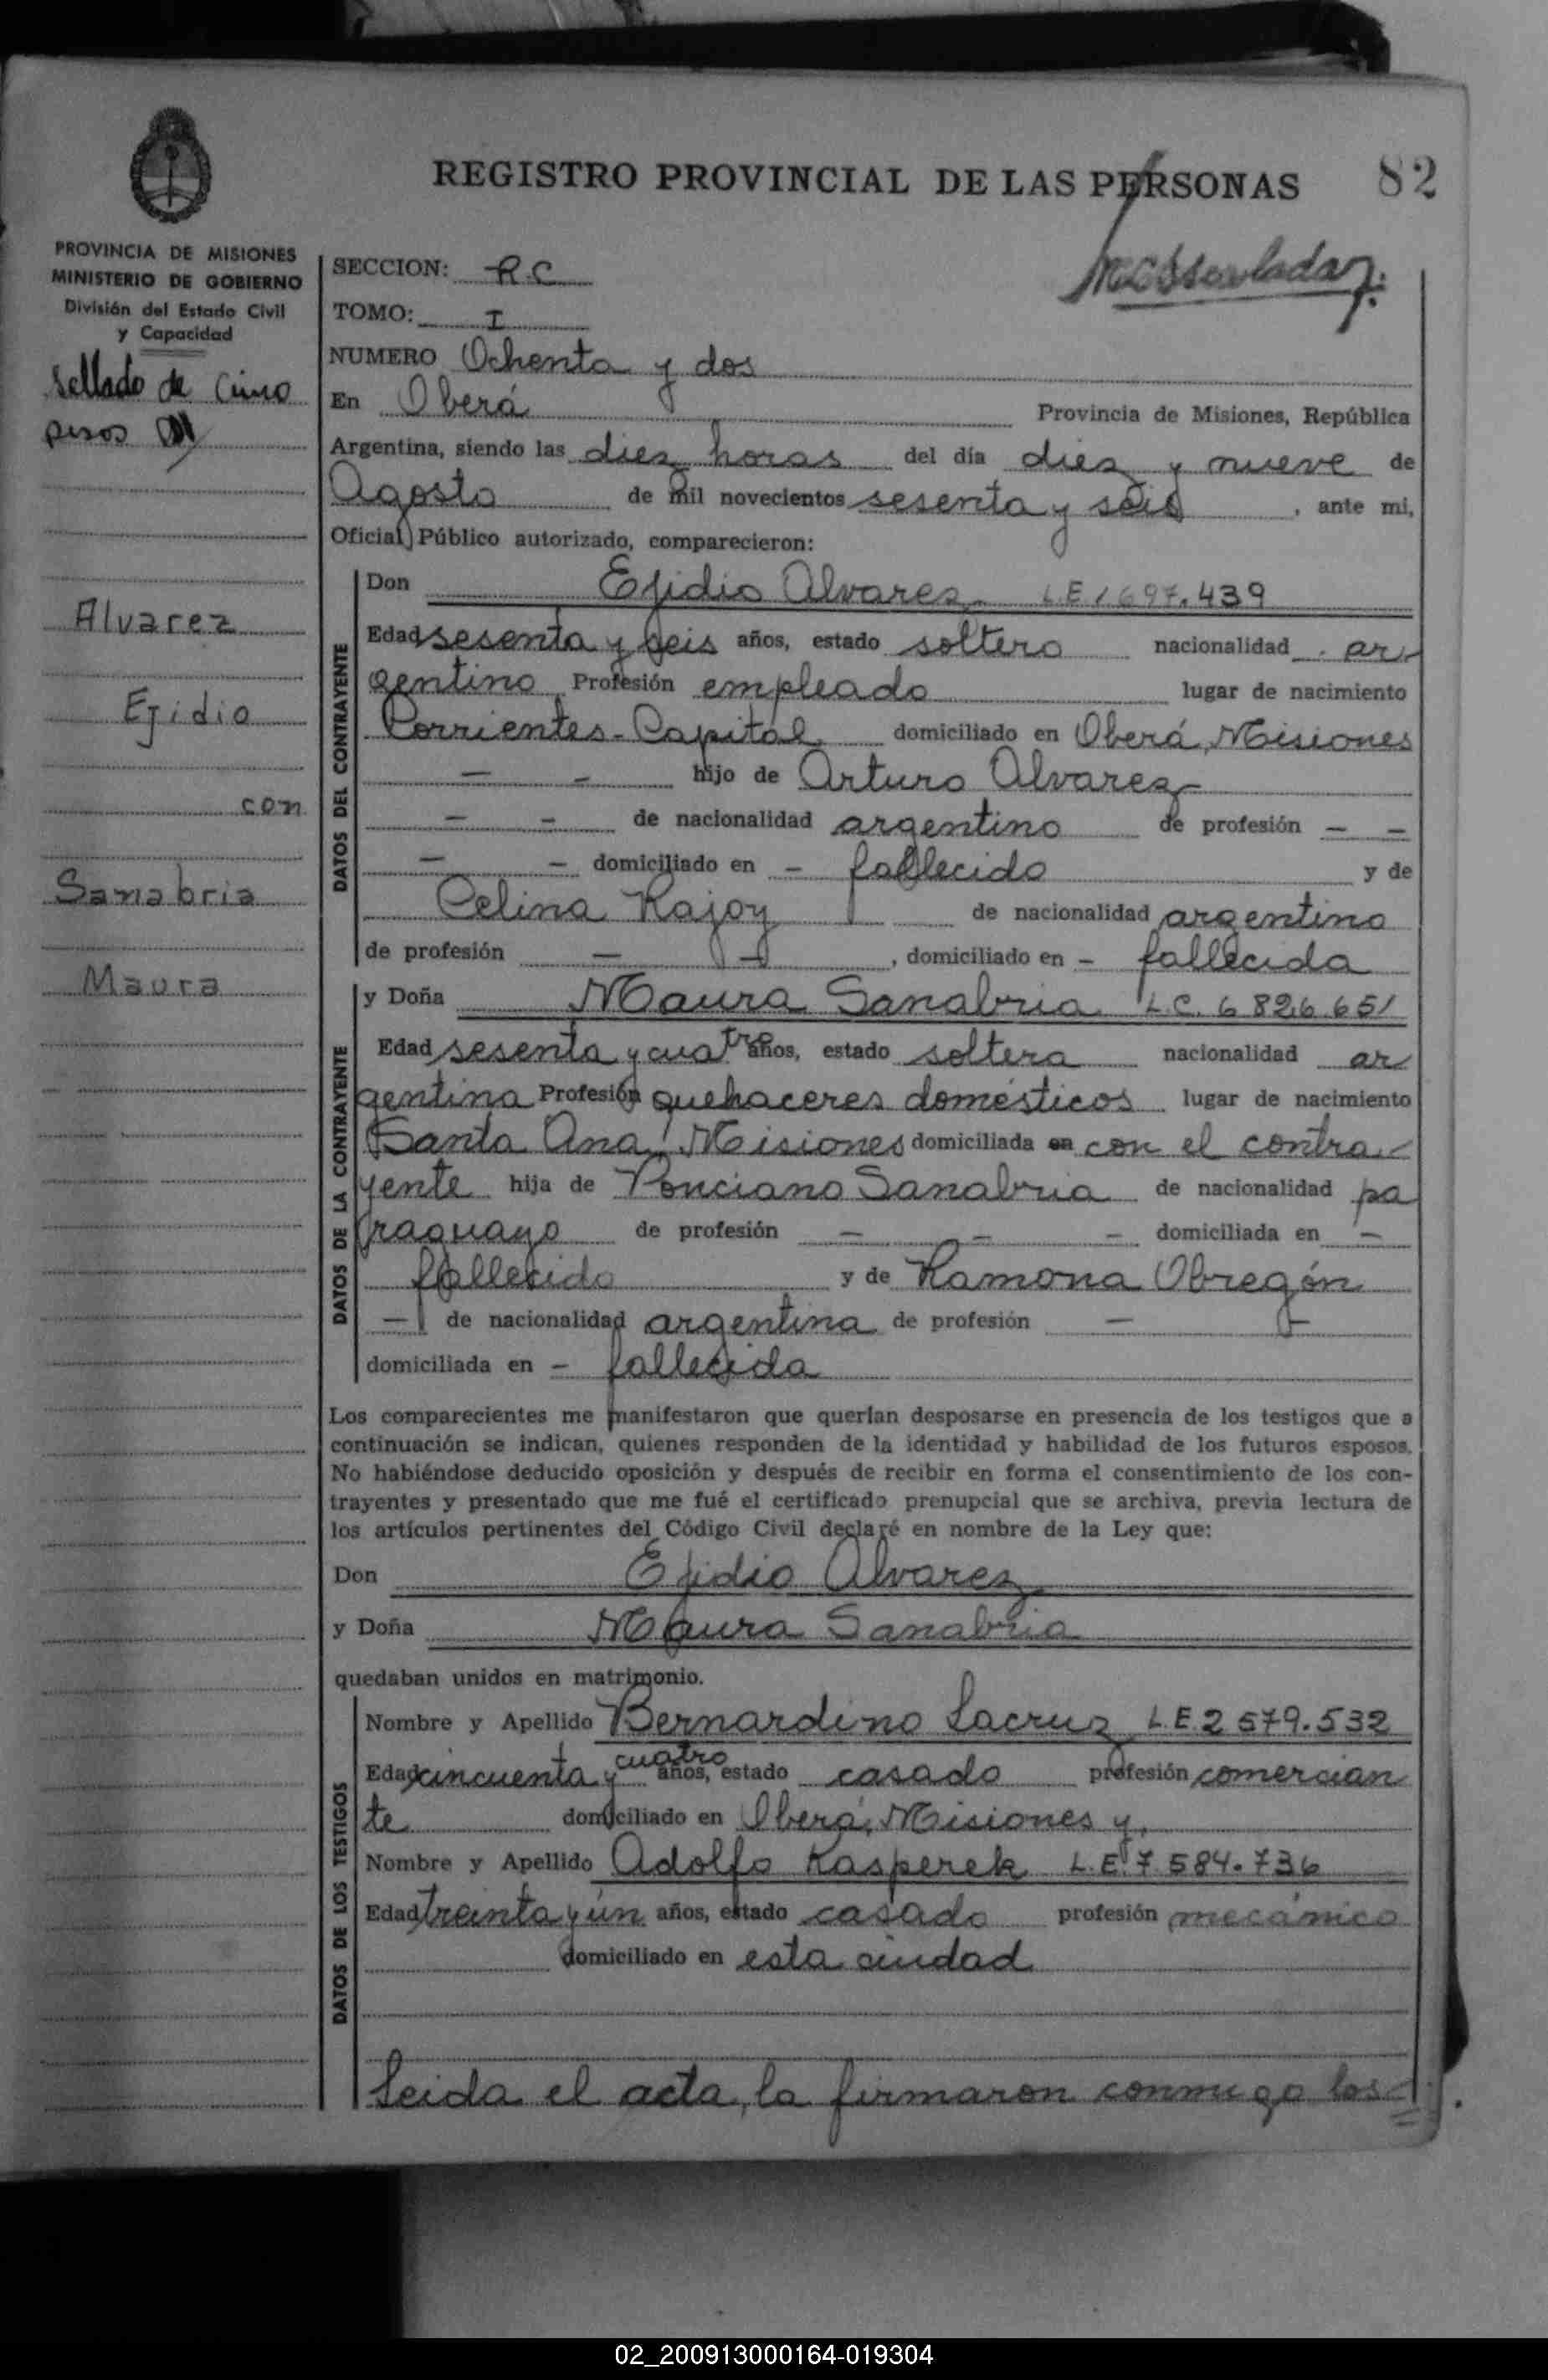 REGISTRO PROVINCIAL DE LAS PERSONAS 82
PROVINCIA DE MISIONES
MINISTERIO DE GOBIERNO
División del Estado Civil
y Capacidad
Sellado de Cinco
pesos
Alvarez
Ejidio
con
Sanabria
Maura
SECCION: R.C
TOMO: I
NUMERO Ochenta y dos
En Oberá Provincia de Misiones, República
Argentina, siendo las diez horas del día diez y nueve de
Agosto de mil novecientos sesenta y seis, ante mi,
Oficial Público autorizado, comparecieron:
DATOS DEL CONTRAYENTE
Don Ejidio Alvarez L.E 1697.439
Edad sesenta y seis años, estado soltero nacionalidad ar-
gentino Profesión empleado lugar de nacimiento
Corrientes-Capital domiciliado en Oberá, Misiones
— — hijo de Arturo Alvarez
— — de nacionalidad argentino de profesión — —
— — domiciliado en - fallecido y de
Celina Rajoy de nacionalidad argentina
de profesión — —, domiciliado en - fallecida
DATOS DE LA CONTRAYENTE
y Doña Maura Sanabria L.C. 6 826 651
Edad sesenta y cuatro años, estado soltera nacionalidad ar
gentina Profesión quehaceres domésticos lugar de nacimiento
Santa Ana, Misiones domiciliada en con el contra-
yente hija de Ponciano Sanabria de nacionalidad pa
raguayo de profesión — — — domiciliada en —
fallecido y de Ramona Obregón
— de nacionalidad argentina de profesión — —
domiciliada en - fallecida
Los comparecientes me manifestaron que querían desposarse en presencia de los testigos que a
continuación se indican, quienes responden de la identidad y habilidad de los futuros esposos.
No habiéndose deducido oposición y después de recibir en forma el consentimiento de los con-
trayentes y presentado que me fué el certificado prenupcial que se archiva, previa lectura de
los artículos pertinentes del Código Civil declaré en nombre de la Ley que:
Don Ejidio Alvarez
y Doña Maura Sanabria
quedaban unidos en matrimonio.
DATOS DE LOS TESTIGOS
Nombre y Apellido Bernardino Lacruz L.E. 2 579.532
Edad cincuenta y cuatro años, estado casado profesión comercian
te domiciliado en Oberá, Misiones y,
Nombre y Apellido Adolfo Kasperek L.E. 7 584.736
Edad treinta y un años, estado casado profesión mecánico
domiciliado en esta ciudad
Leida el acta, la firmaron conmigo los
02_200913000164-019304